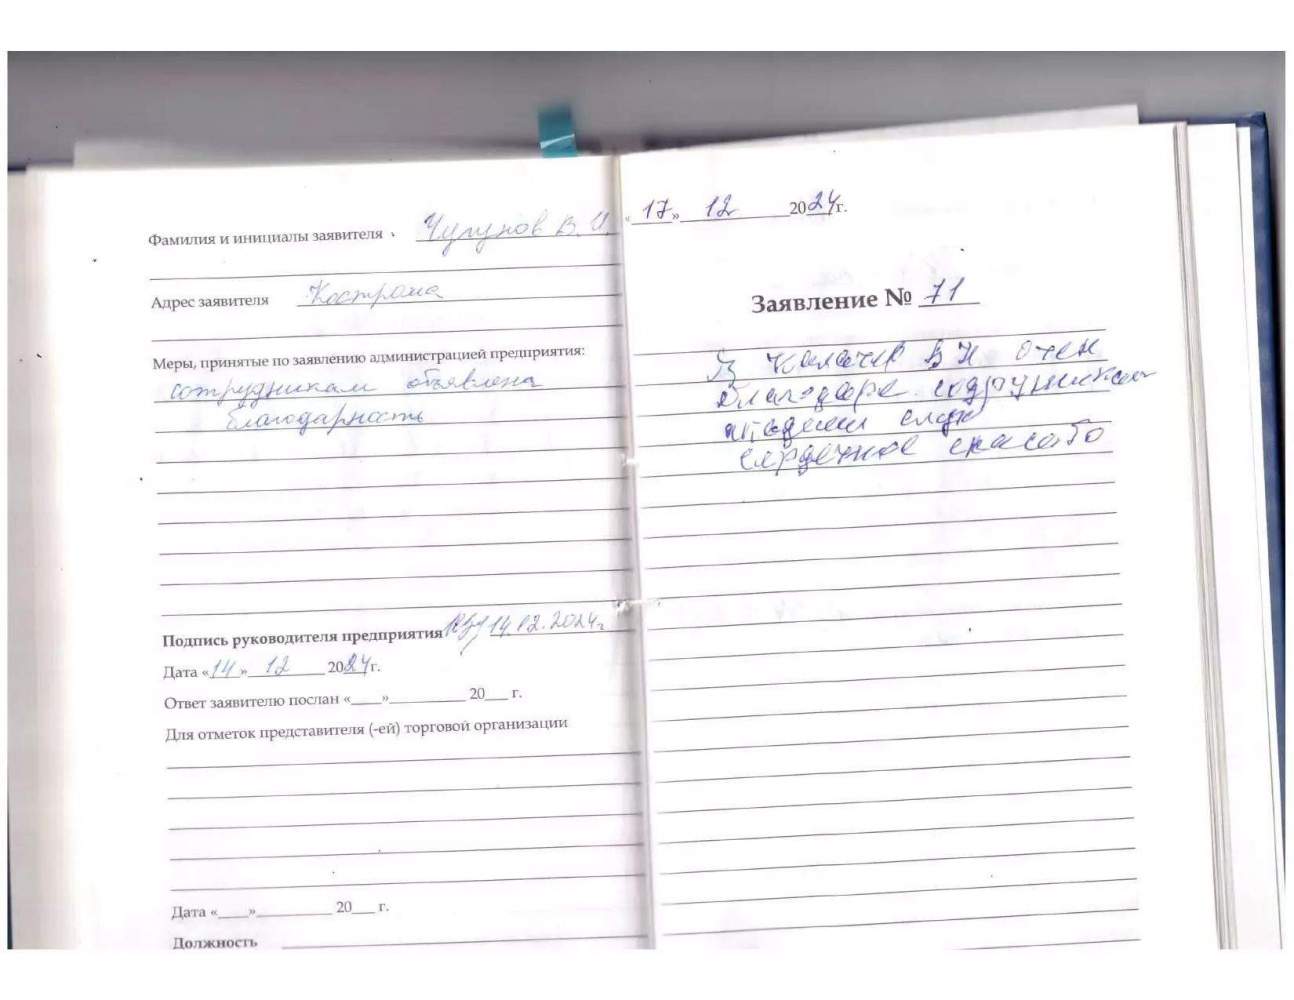 Фамилия и инициалы заявителя Чугунов В. И.
Адрес заявителя Кострома
Меры, принятые по заявлению администрацией предприятия:
сотрудникам объявлена
благодарность
Подпись руководителя предприятия 14.12.2024г
Дата «14» 12 2024г.
Ответ заявителю послан «___»_________ 20___ г.
Для отметок представителя (-ей) торговой организации
Дата «____»__________ 20___ г.
Должность
«17» 12 2024г.
Заявление № 71
Я В И очен
благодаре
сердечное спасибо